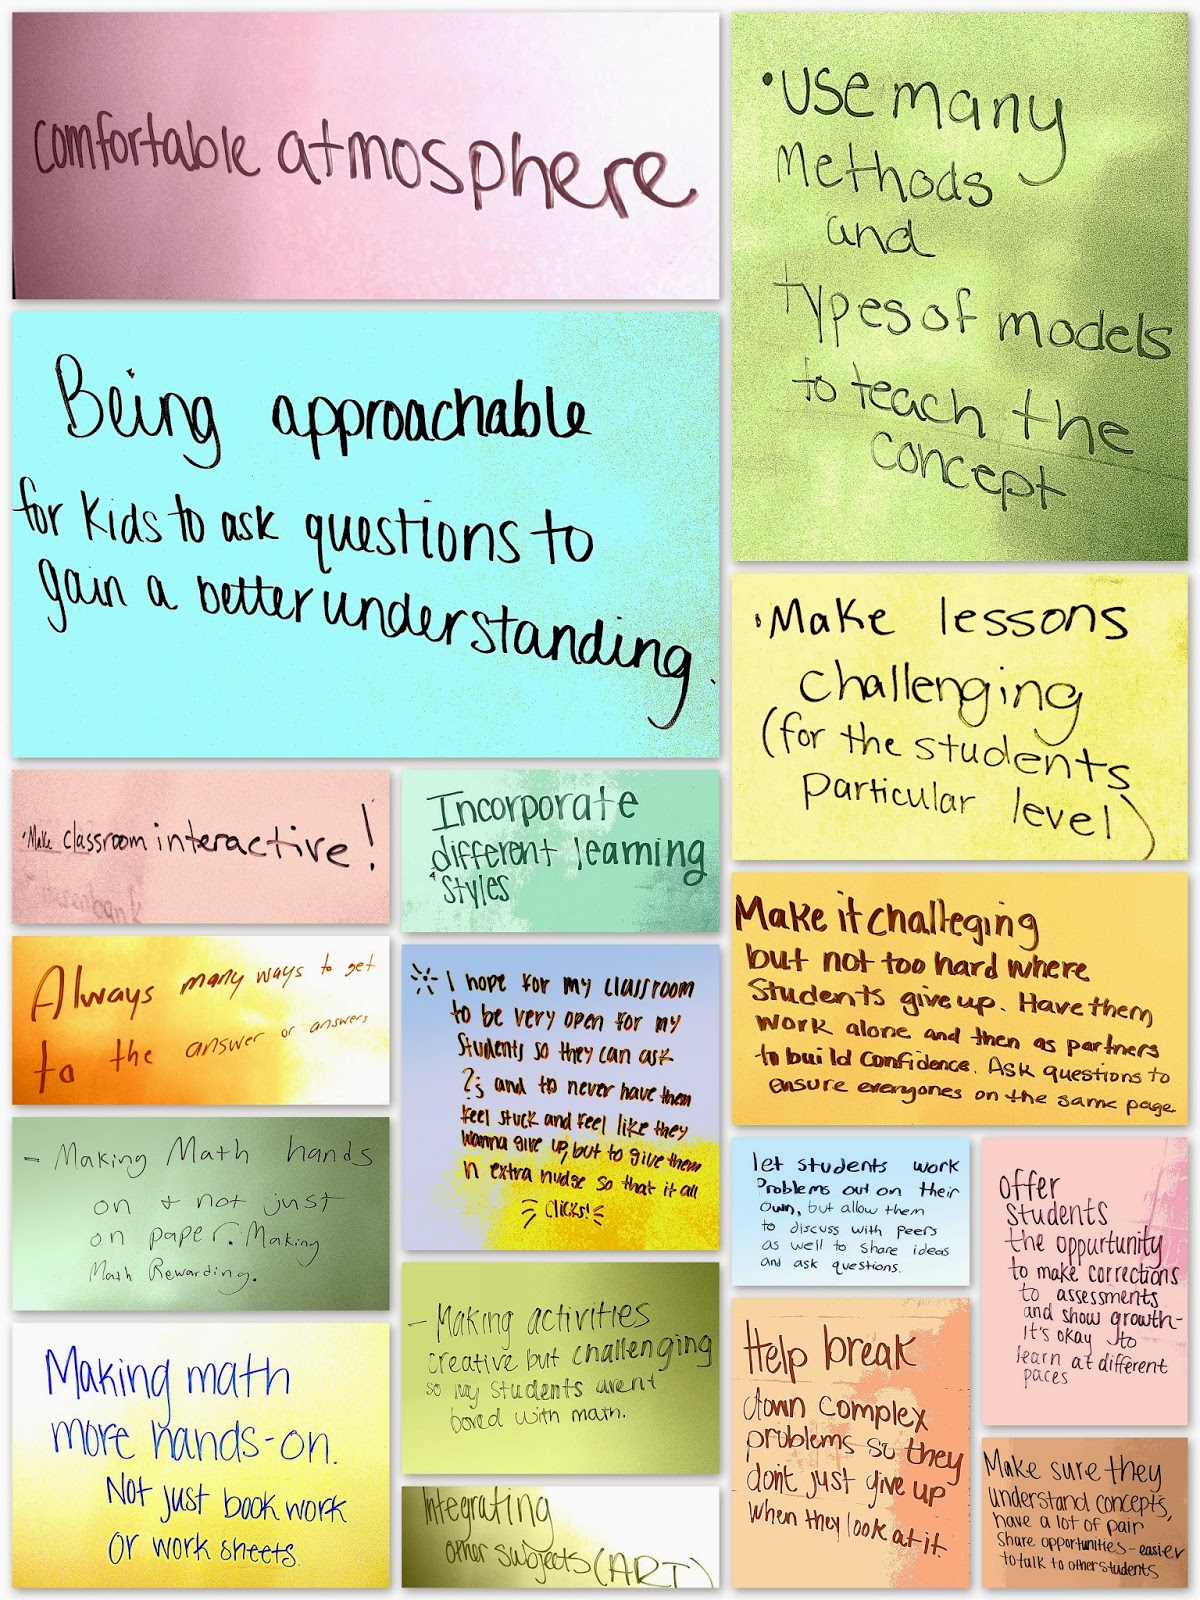 comfortable atmosphere
• Use many
methods
and
types of models
to teach the
concept
Being approachable
for kids to ask questions to
gain a better understanding.
• Make lessons
challenging
(for the students
particular level)
• Make classroom interactive!
Incorporate
different learning
styles
Make it challeging
but not too hard where
Students give up. Have them
work alone and then as partners
to build confidence. Ask questions to
ensure everyones on the same page
Always many ways to get
to the answer or answers
I hope for my classroom
to be very open for my
students so they can ask
?'s and to never have them
feel stuck and feel like they
wanna give up, but to give them
n extra nudge so that it all
clicks!
- Making Math hands
on + not just
on paper. Making
Math Rewarding.
let students work
Problems out on their
own, but allow them
to discuss with peers
as well to share ideas
and ask questions.
offer
students
the oppurtunity
to make corrections
to assessments
and show growth-
it's okay to
learn at different
paces
- Making activities
creative but challenging
so my students arent
bored with math.
Help break
down complex
problems so they
don't just give up
when they look at it.
Making math
more hands-on.
Not just book work
or work sheets.
Integrating
other subjects (ART)
Make sure they
understand concepts,
have a lot of pair
share opportunities - easier
to talk to other students